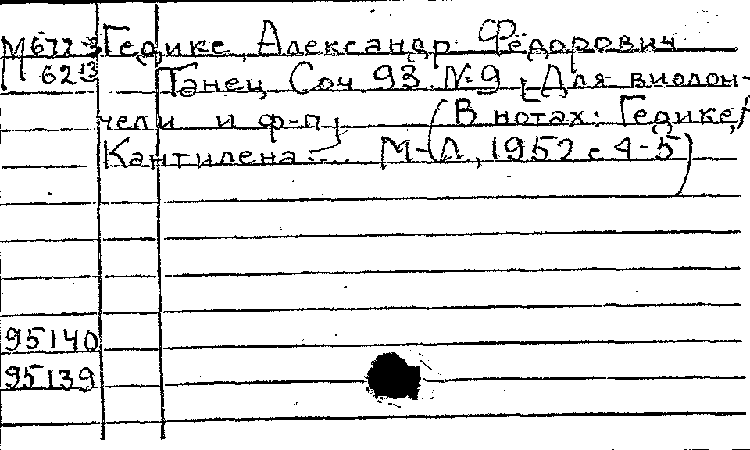 М677-3 Гедике, Александр Фёдорович
М 623 Танец Соч 93 №9 [Для виолон-
чели и ф-п] (В нотах: Гедике А
Кантилена ... М-Л, 1952 с 4-5)
95140
95139